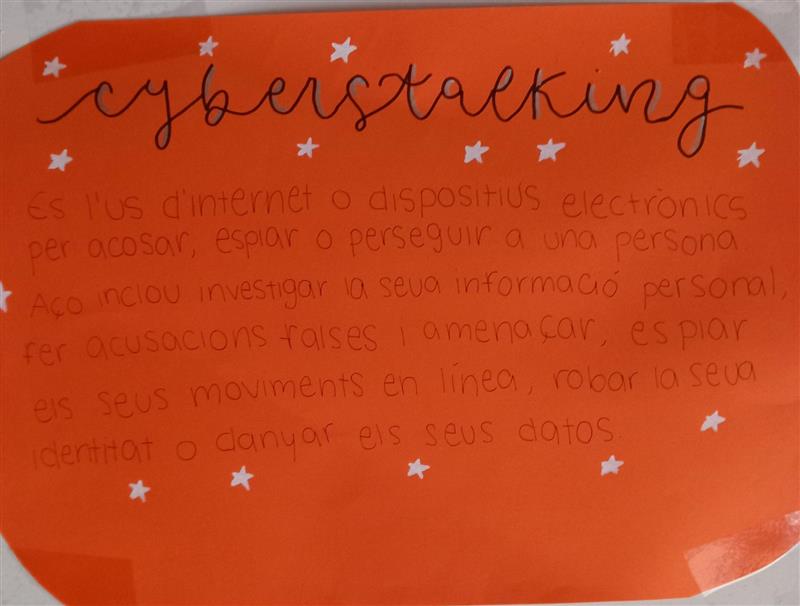 cyberstalking
És l'us d'internet o dispositius electrònics
per acosar, espiar o perseguir a una persona
Aço inclou investigar la seua informació personal,
fer acusacions falses i amenaçar, espiar
els seus moviments en línea, robar la seua
identitat o danyar els seus datos.